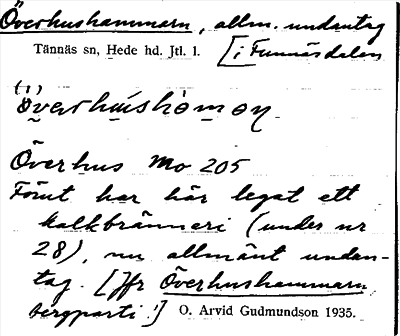 Överhushammarn, allm. undantag
Tännäs sn, Hede hd. Jtl. l. [i Funnäsdalen
(1)
överhushamaṇ
Överhus Mo 205
Förut har här legat ett
kalkbränneri (under nr
28), nu allmänt undan-
tag. [Jfr Överhushammarn
bergparti!] O. Arvid Gudmundson 1935.